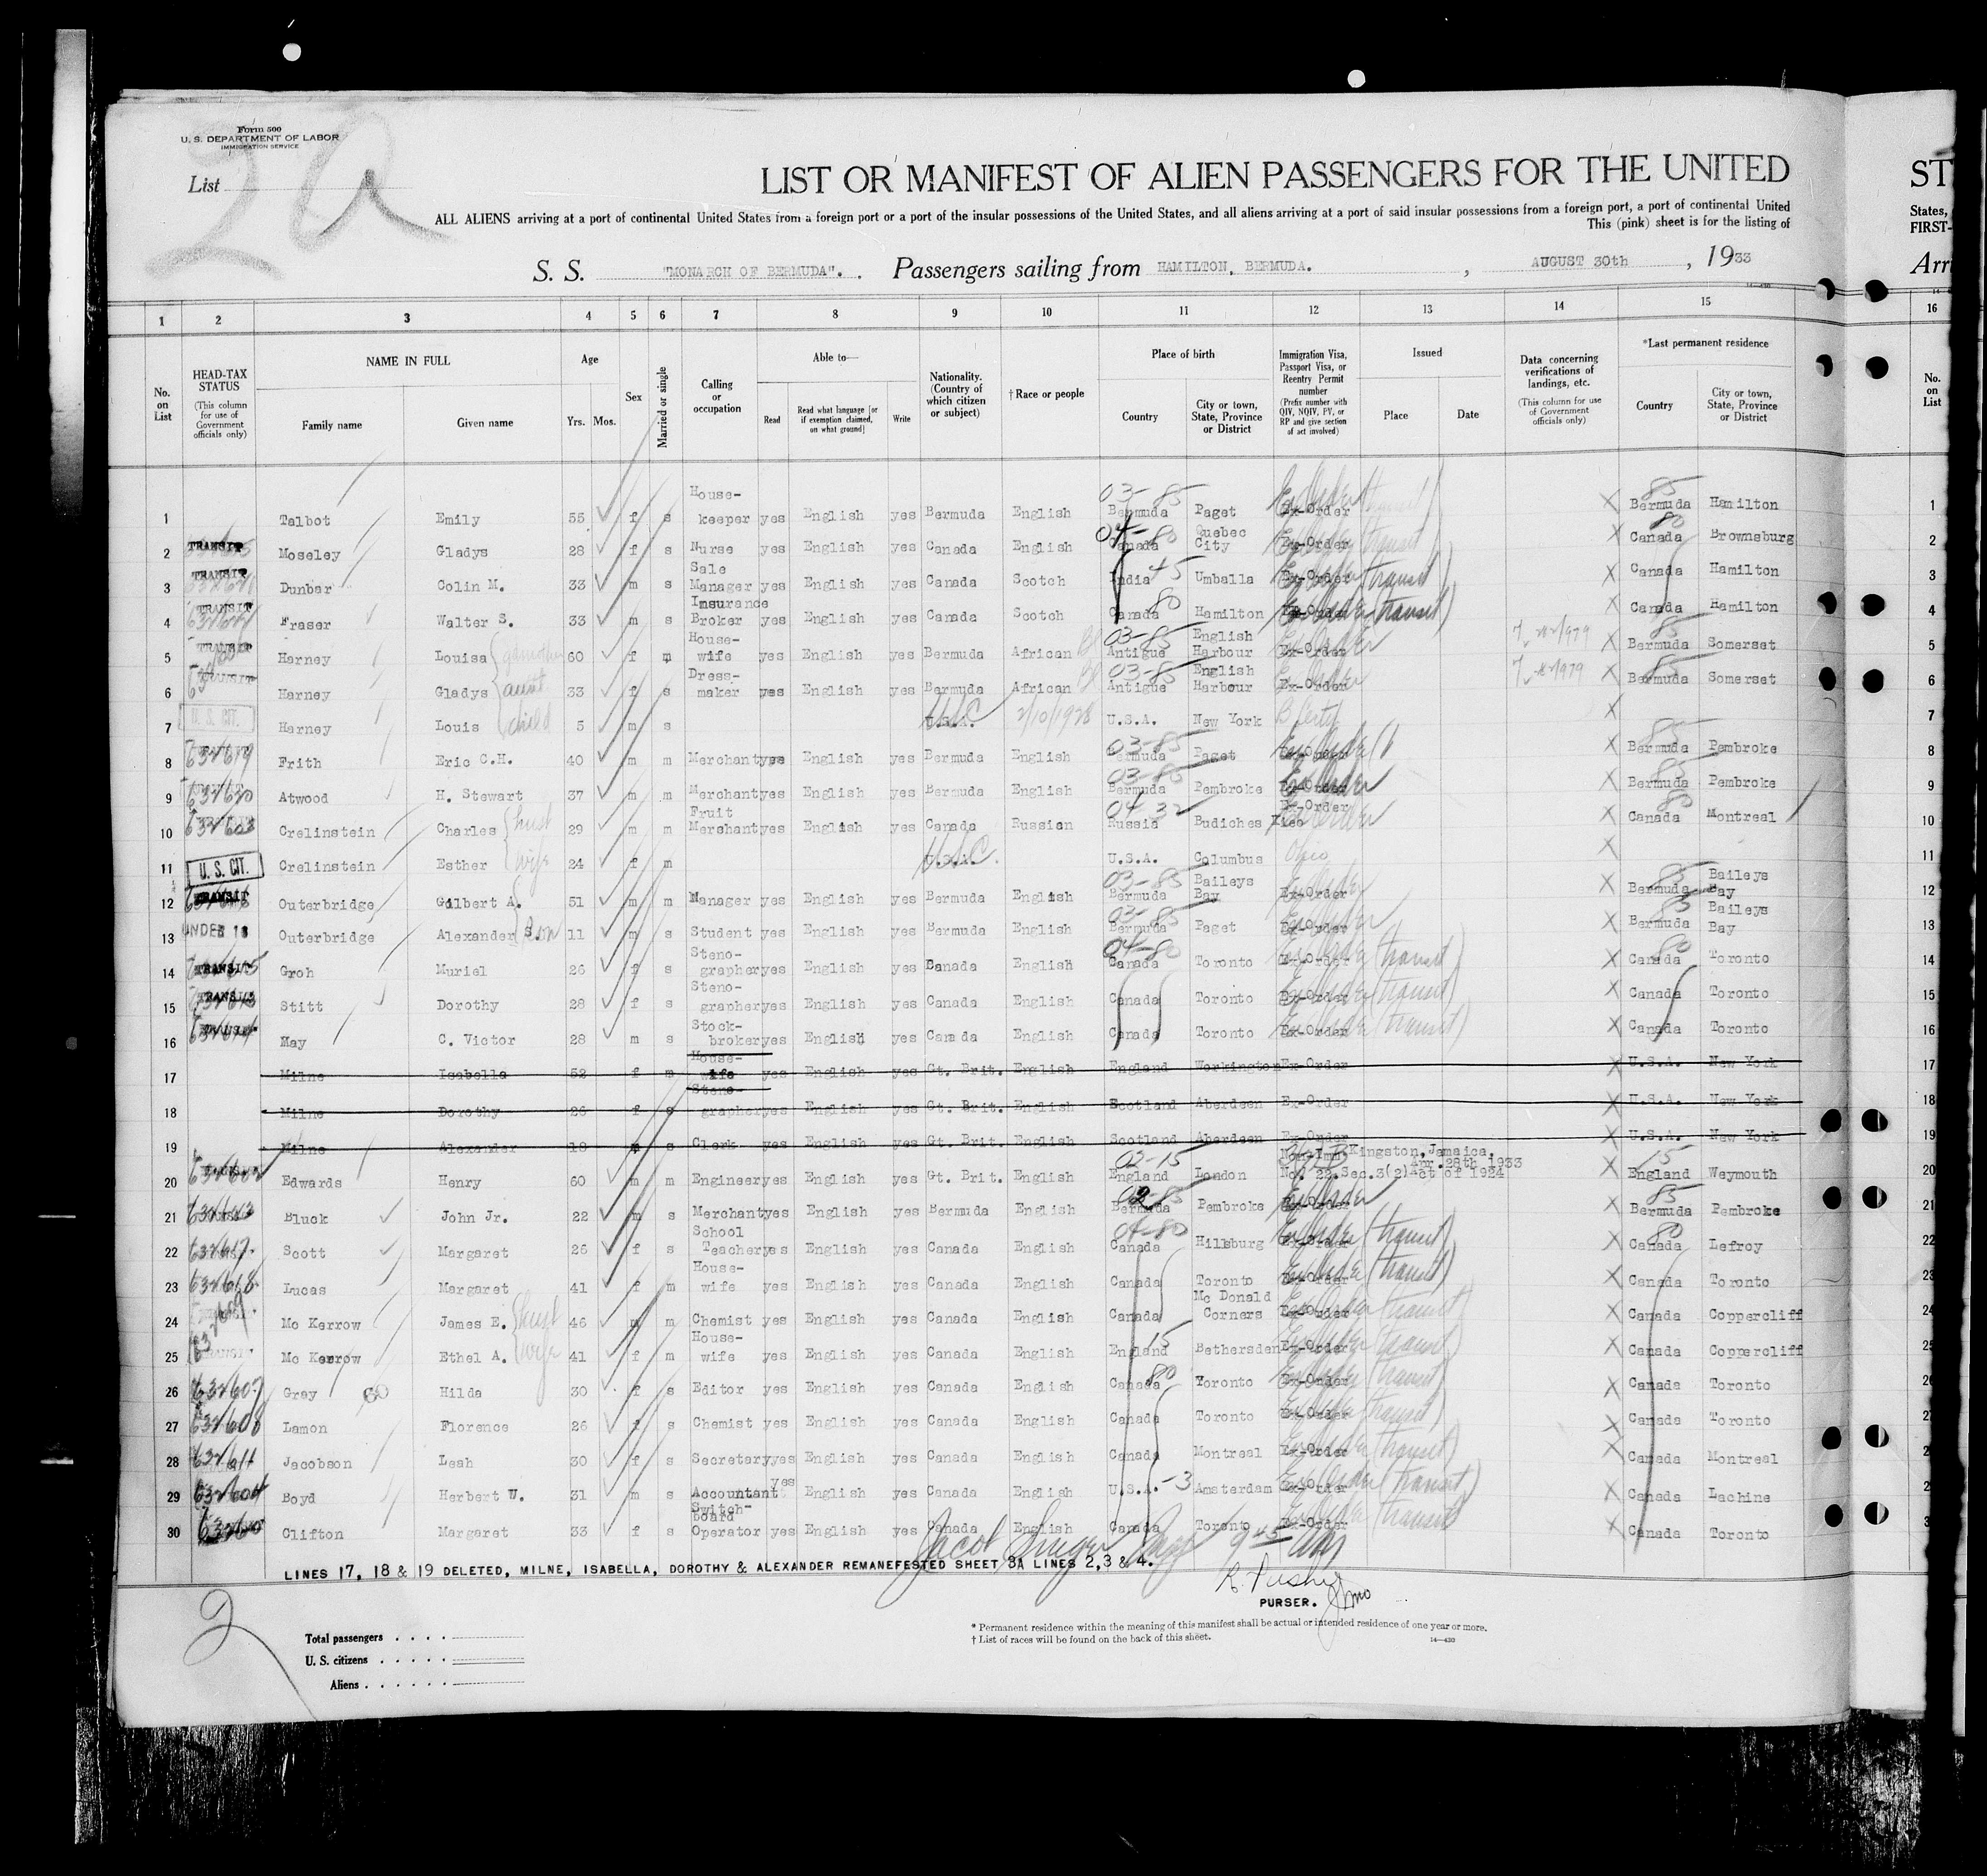 Form 500
U. S. DEPARTMENT OF LABOR
IMMIGRATION SERVICE
List
2a
LIST OR MANIFEST OF ALIEN PASSENGERS FOR THE UNITED
ST
ALL ALIENS arriving at a port of continental United States from a foreign port or a port of the insular possessions of the United States, and all aliens arriving at a port of said insular possessions from a foreign port, a port of continental United
States,
This (pink) sheet is for the listing of
FIRST-
S. S. "MONARCH OF BERMUDA". Passengers sailing from HAMILTON, BERMUDA. , AUGUST 30th , 1933
Arri
1 2 3 4 5 6 7 8 9 10 11 12 13 14 15 16
No. on List
HEAD-TAX STATUS (This column for use of Government officials only)
NAME IN FULL
Family name Given name
Age
Yrs. Mos.
Sex
Married or single
Calling or occupation
Able to—
Read
Read what language [or if exemption claimed, on what ground]
Write
Nationality. (Country of which citizen or subject)
†Race or people
Place of birth
Country
City or town, State, Province or District
Immigration Visa, Passport Visa, or Reentry Permit number
(Prefix number with QIV, NQIV, PV, or RP and give section of act involved)
Issued
Place Date
Data concerning verifications of landings, etc.
(This column for use of Government officials only)
*Last permanent residence
Country
City or town, State, Province or District
No. on List
1 Talbot Emily 55 f s House-keeper yes English yes Bermuda English 03-85 Bermuda Paget Ex-Order X 85 Bermuda Hamilton 1
2 TRANSIT Moseley Gladys 28 f s Nurse yes English yes Canada English 04-80 Canada Quebec City Ex-Order (transit) X 80 Canada Brownsburg 2
3 TRANSIT Dunbar Colin M. 33 m s Sale Manager yes English yes Canada Scotch India 45 Umballa Ex-Order (transit) X Canada Hamilton 3
4 TRANSIT Fraser Walter S. 33 m s Insurance Broker yes English yes Canada Scotch Canada 80 Hamilton Ex-Order (transit) X Canada Hamilton 4
5 TRANSIT Harney Louisa 60 f m House-wife yes English yes Bermuda African 03-85 Antigue English Harbour Ex-Order X 85 Bermuda Somerset 5
6 TRANSIT Harney Gladys aunt 33 f s Dress-maker yes English yes Bermuda African 03-85 Antigue English Harbour Ex-Order X 85 Bermuda Somerset 6
7 U. S. CIT. Harney Louis child 5 m s U.S.A. 2/10/1928 U.S.A. New York X 7
8 632619 Frith Eric C.H. 40 m m Merchant yes English yes Bermuda English 03-85 Bermuda Paget Ex-Order X 85 Bermuda Pembroke 8
9 632620 Atwood H. Stewart 37 m m Merchant yes English yes Bermuda English 03-85 Bermuda Pembroke Ex-Order X 85 Bermuda Pembroke 9
10 632603 Crelinstein Charles husb 29 m m Fruit Merchant yes English yes Canada Russian 04 32 Russia Budiches Ex-Order X 80 Canada Montreal 10
11 U. S. CIT. Crelinstein Esther wife 24 f m U.S.A. USC U.S.A. Columbus Ohio X 11
12 TRANSIT Outerbridge Gilbert A. 51 m m Manager yes English yes Bermuda English 03-85 Bermuda Baileys Bay Ex-Order X 85 Bermuda Baileys Bay 12
13 UNDER 16 Outerbridge Alexander Son 11 m s Student yes English yes Bermuda English 03-85 Bermuda Paget Ex-Order X 85 Bermuda Baileys Bay 13
14 TRANSIT Groh Muriel 26 f s Steno-grapher yes English yes Canada English 04-80 Canada Toronto Ex-Order (transit) X 80 Canada Toronto 14
15 TRANSIT Stitt Dorothy 28 f s Steno-grapher yes English yes Canada English Canada Toronto Ex-Order (transit) X Canada Toronto 15
16 May C. Victor 28 m s Stock-broker yes English yes Canada English Canada Toronto Ex-Order (transit) X Canada Toronto 16
17 Milne Isabella 52 f m House-wife yes English yes Gt. Brit. English England Workington Ex-Order X U.S.A. New York 17
18 Milne Dorothy 26 f s Steno-grapher yes English yes Gt. Brit. English Scotland Aberdeen Ex-Order X U.S.A. New York 18
19 Milne Alexander 18 m s Clerk yes English yes Gt. Brit. English Scotland Aberdeen Ex-Order X U.S.A. New York 19
20 Edwards Henry 60 m m Engineer yes English yes Gt. Brit. English 02-15 England London No. 22.Sec.3(2)-ct of 1924 Kingston, Jamaica, Apr. 28th 1933 X 15 England Weymouth 20
21 Bluck John Jr. 22 m s Merchant yes English yes Bermuda English Bermuda Pembroke Ex-Order X 85 Bermuda Pembroke 21
22 632617 Scott Margaret 26 f s School Teacher yes English yes Canada English 04-80 Canada Hillsburg Ex-Order (transit) X 80 Canada Lefroy 22
23 632618 Lucas Margaret 41 f m House-wife yes English yes Canada English Canada Toronto Ex-Order (transit) X Canada Toronto 23
24 Mc Kerrow James E. husb 46 m m Chemist yes English yes Canada English Canada Mc Donald Corners Ex-Order (transit) X Canada Coppercliff 24
25 Mc Kerrow Ethel A. wife 41 f m House-wife yes English yes Canada English England 15 Bethersden Ex-Order (transit) X Canada Coppercliff 25
26 632607 Gray Hilda 30 f s Editor yes English yes Canada English Canada 80 Toronto Ex-Order (transit) X Canada Toronto 26
27 632608 Lamon Florence 26 f s Chemist yes English yes Canada English Canada Toronto Ex-Order (transit) X Canada Toronto 27
28 632611 Jacobson Leah 30 f s Secretary yes English yes Canada English Canada Montreal Ex-Order (transit) X Canada Montreal 2
29 632604 Boyd Herbert W. 31 m s Accountant yes English yes Canada English U.S.A. -3 Amsterdam Ex-Order (transit) X Canada Lachine 2
30 Clifton Margaret 33 f s Switch-board Operator yes English yes Canada English Canada Toronto Ex-Order (transit) X Canada Toronto 3
Jacob Singer
LINES 17, 18 & 19 DELETED, MILNE, ISABELLA, DOROTHY & ALEXANDER REMANEFESTED SHEET 3A LINES 2,3 & 4.
PURSER.
2
Total passengers
U. S. citizens
Aliens
* Permanent residence within the meaning of this manifest shall be actual or intended residence of one year or more.
† List of races will be found on the back of this sheet.
14—430